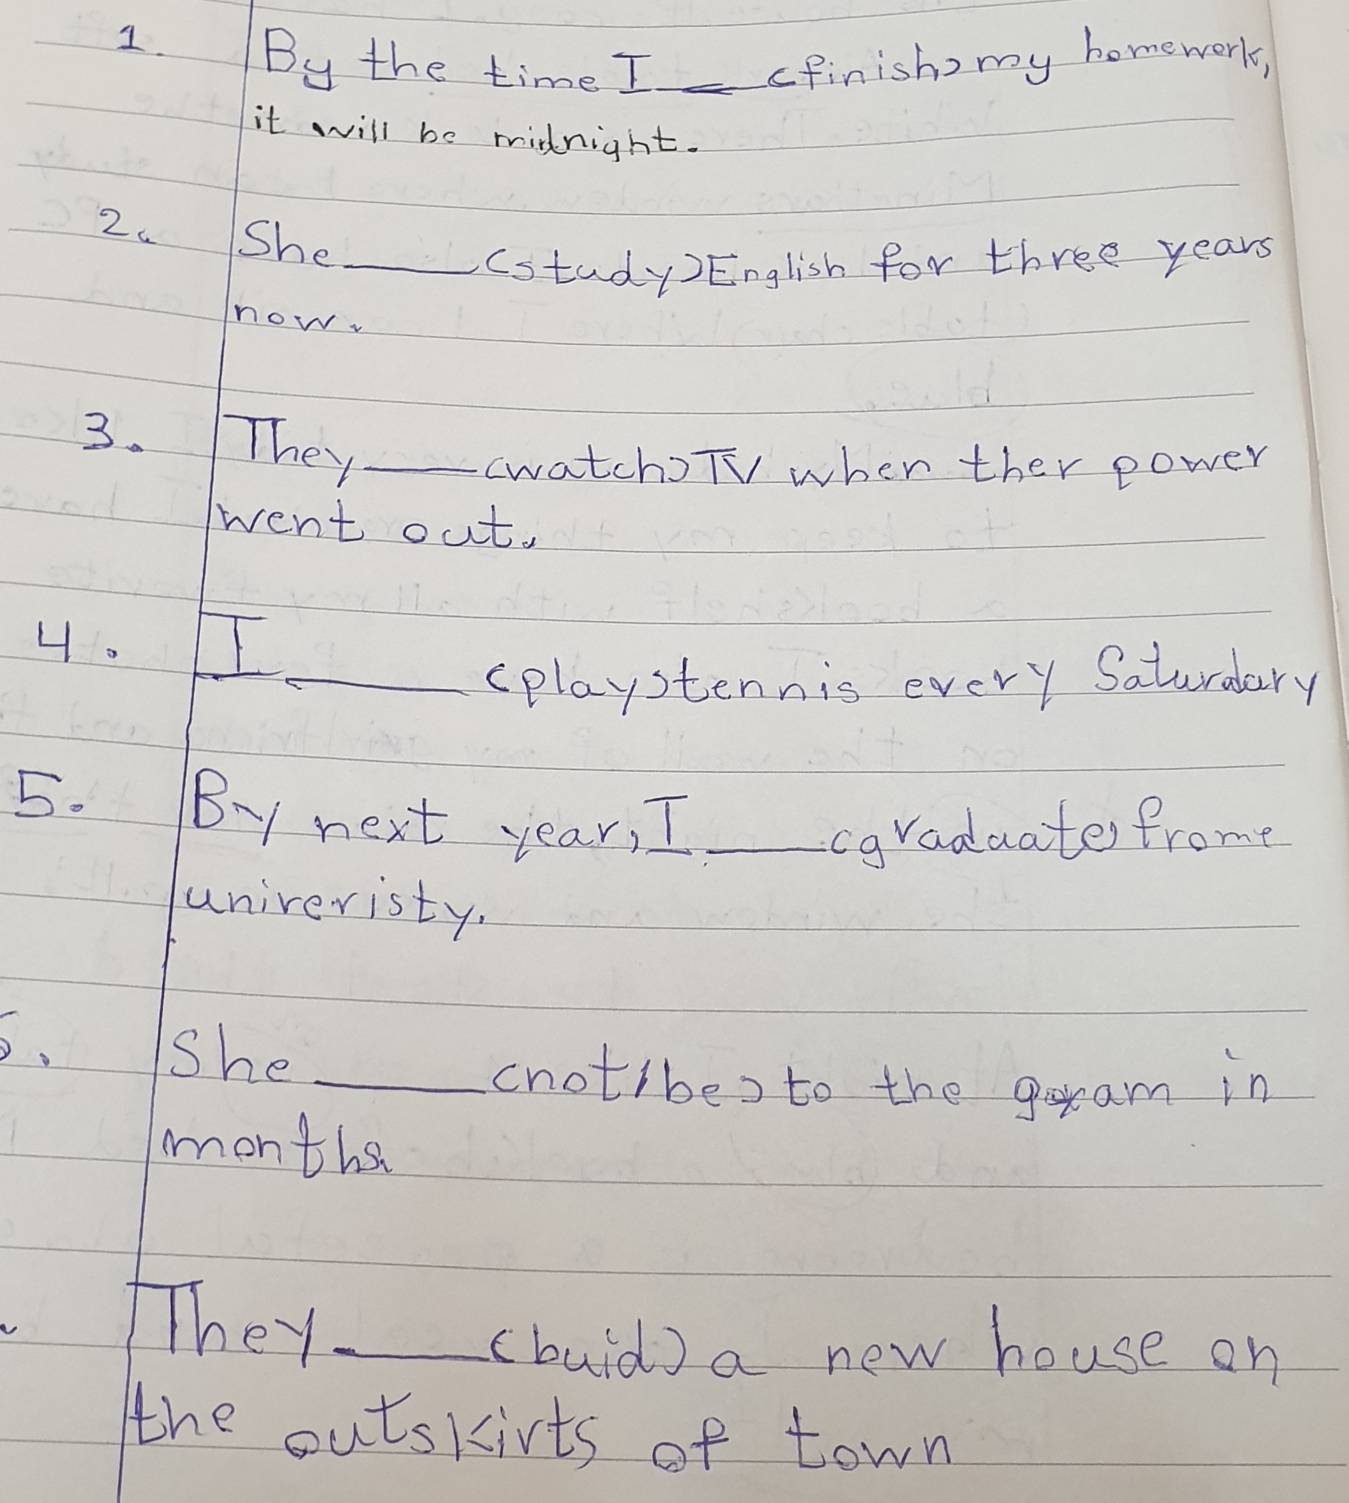 1. By the time I __ (finish) my homework,
it will be midnight.
2. She ____ (study) English for three years
now.
3. They ____ (watch) TV when ther power
went out.
4. I ____ (play) tennis every Saturdary
5. By next year, I ____ (graduate) frome
univeristy.
She ____ (not/be) to the in
months.
They ____ (buid) a new house on
the outskirts of town